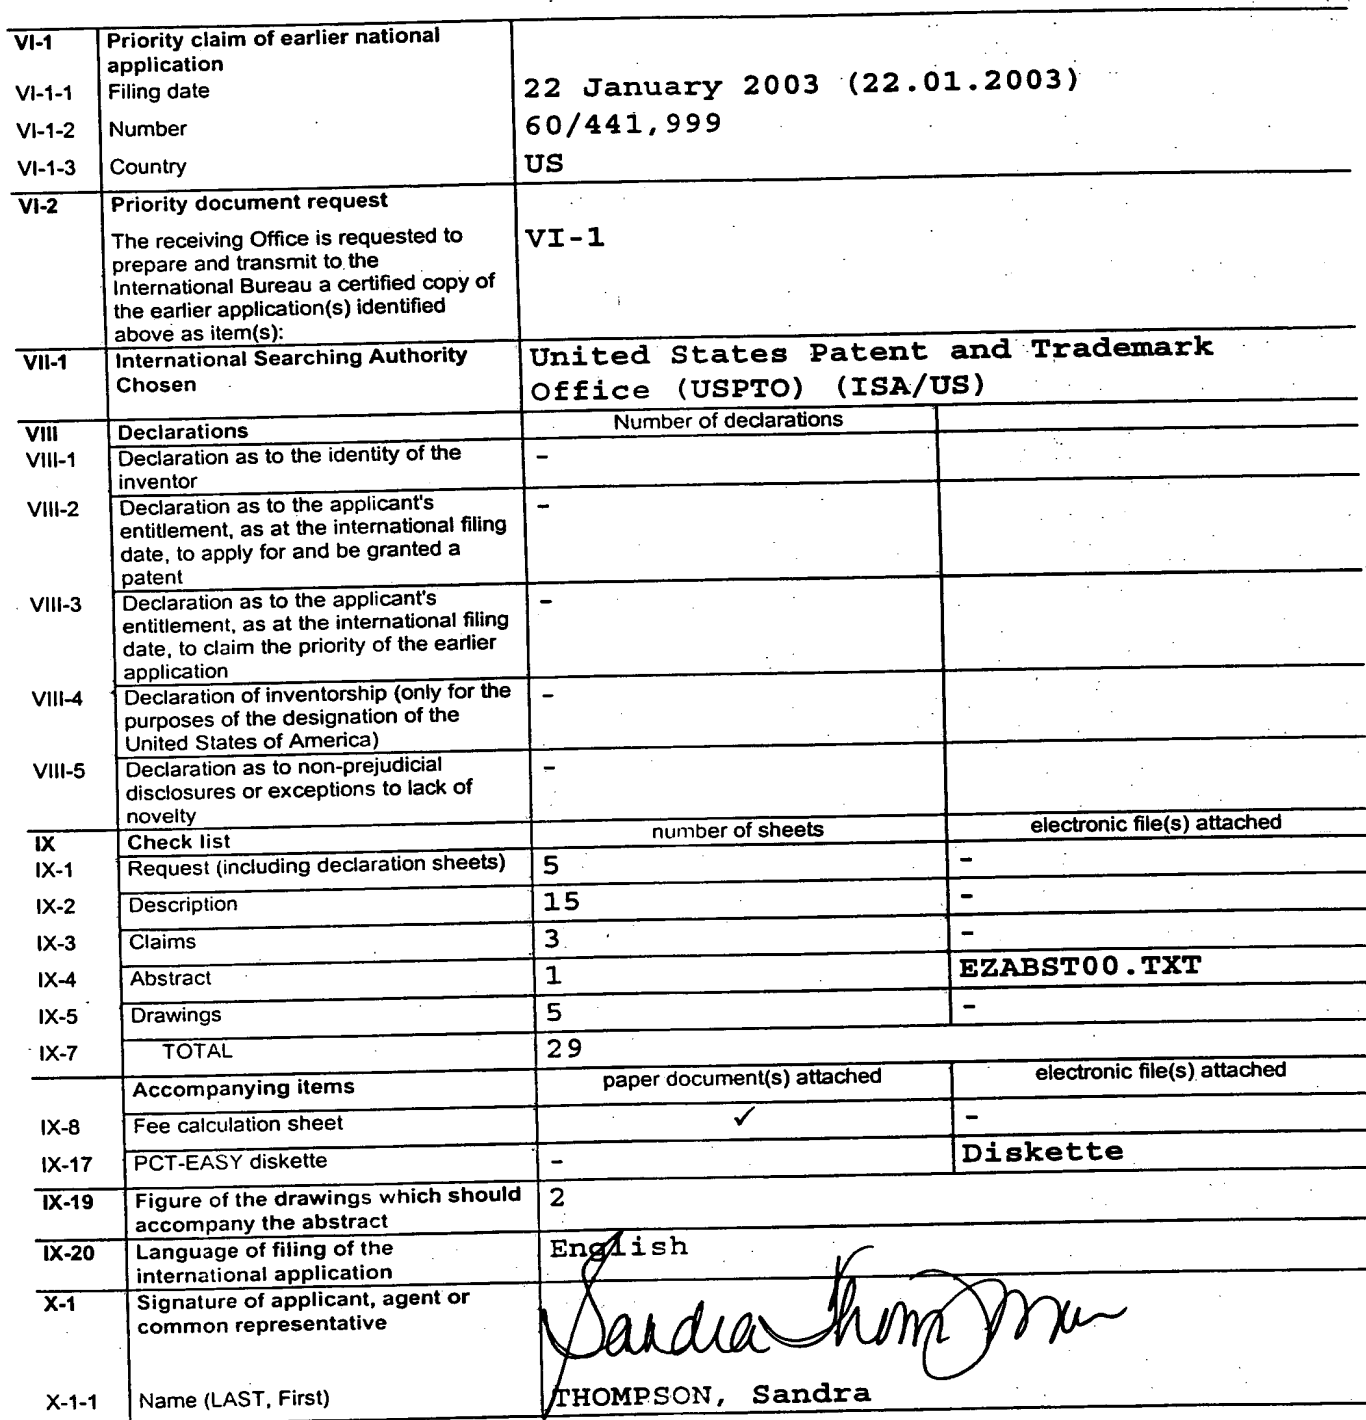 VI-1 Priority claim of earlier national
application
VI-1-1 Filing date 22 January 2003 (22.01.2003)
VI-1-2 Number 60/441,999
VI-1-3 Country US
VI-2 Priority document request
The receiving Office is requested to VI-1
prepare and transmit to the
International Bureau a certified copy of
the earlier application(s) identified
above as item(s):
VII-1 International Searching Authority United States Patent and Trademark
Chosen Office (USPTO) (ISA/US)
VIII Declarations Number of declarations
VIII-1 Declaration as to the identity of the -
inventor
VIII-2 Declaration as to the applicant's -
entitlement, as at the international filing
date, to apply for and be granted a
patent
VIII-3 Declaration as to the applicant's -
entitlement, as at the international filing
date, to claim the priority of the earlier
application
VIII-4 Declaration of inventorship (only for the -
purposes of the designation of the
United States of America)
VIII-5 Declaration as to non-prejudicial -
disclosures or exceptions to lack of
novelty
IX Check list number of sheets electronic file(s) attached
IX-1 Request (including declaration sheets) 5 -
IX-2 Description 15 -
IX-3 Claims 3 -
IX-4 Abstract 1 EZABST00.TXT
IX-5 Drawings 5 -
IX-7 TOTAL 29
Accompanying items paper document(s) attached electronic file(s) attached
IX-8 Fee calculation sheet ✓ -
IX-17 PCT-EASY diskette - Diskette
IX-19 Figure of the drawings which should 2
accompany the abstract
IX-20 Language of filing of the English
international application
X-1 Signature of applicant, agent or Sandra Thompson
common representative
X-1-1 Name (LAST, First) THOMPSON, Sandra